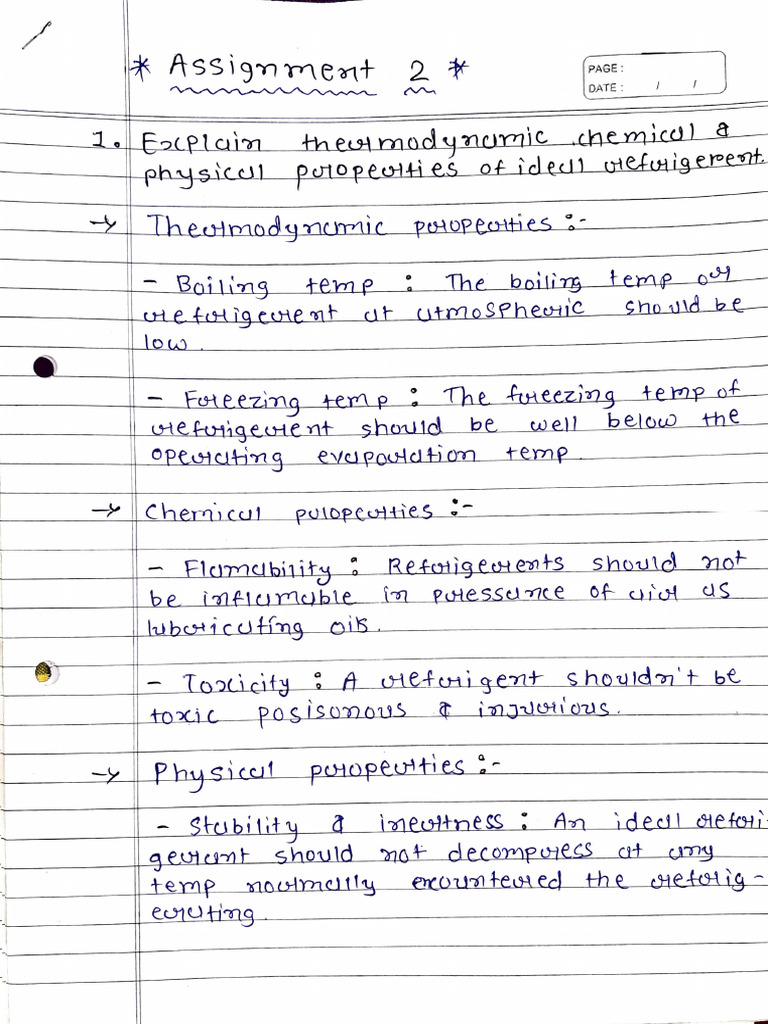 * Assignment 2 *
PAGE :
DATE : / /
1. Explain thermodynamic chemical &
physical properties of ideal refrigerent.
→ Thermodynamic properties :-
- Boiling temp : The boiling temp of
refrigerent at atmospheric should be
low.
- Freezing temp : The freezing temp of
refrigerent should be well below the
operating evaporation temp.
→ Chemical properties :-
- Flamability : Refrigerents should not
be inflamable in pressance of air as
lubricating oils.
- Toxicity : A refrigent shouldn't be
toxic posisonous & injurious.
→ Physical properties :-
- Stability & inertness : An ideal refri-
gerant should not decompress at any
temp normally encountered the refrig-
erating.